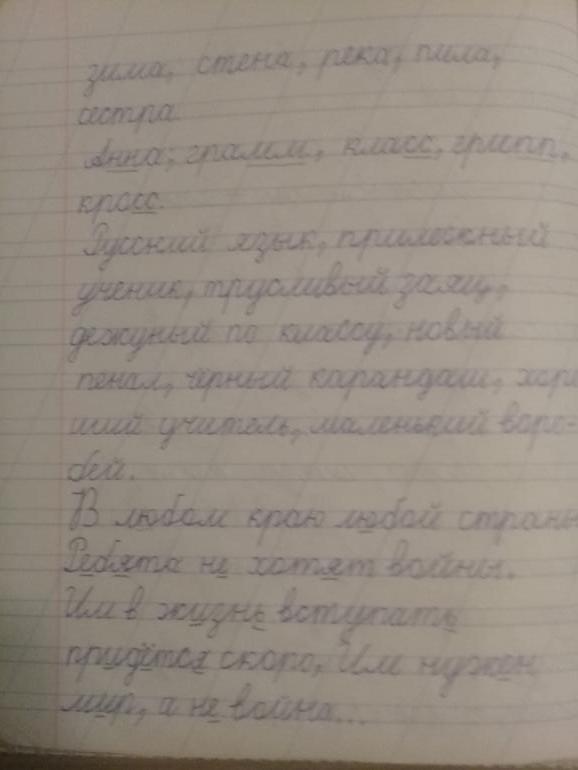 зима, стена, река, пила,
сестра.
Анна, грамм, класс, грипп,
кросс.
Русский язык, прилежный
ученик, трусливый заяц,
дежуный по классу, новый
пенал, чёрный карандаш, хоро
ший учитель, маленький воро-
бей.
В любом краю любой страны
Ребята не хотят войны.
Им в жизнь вступать
придётся скоро, Им нужен
мир, а не война...